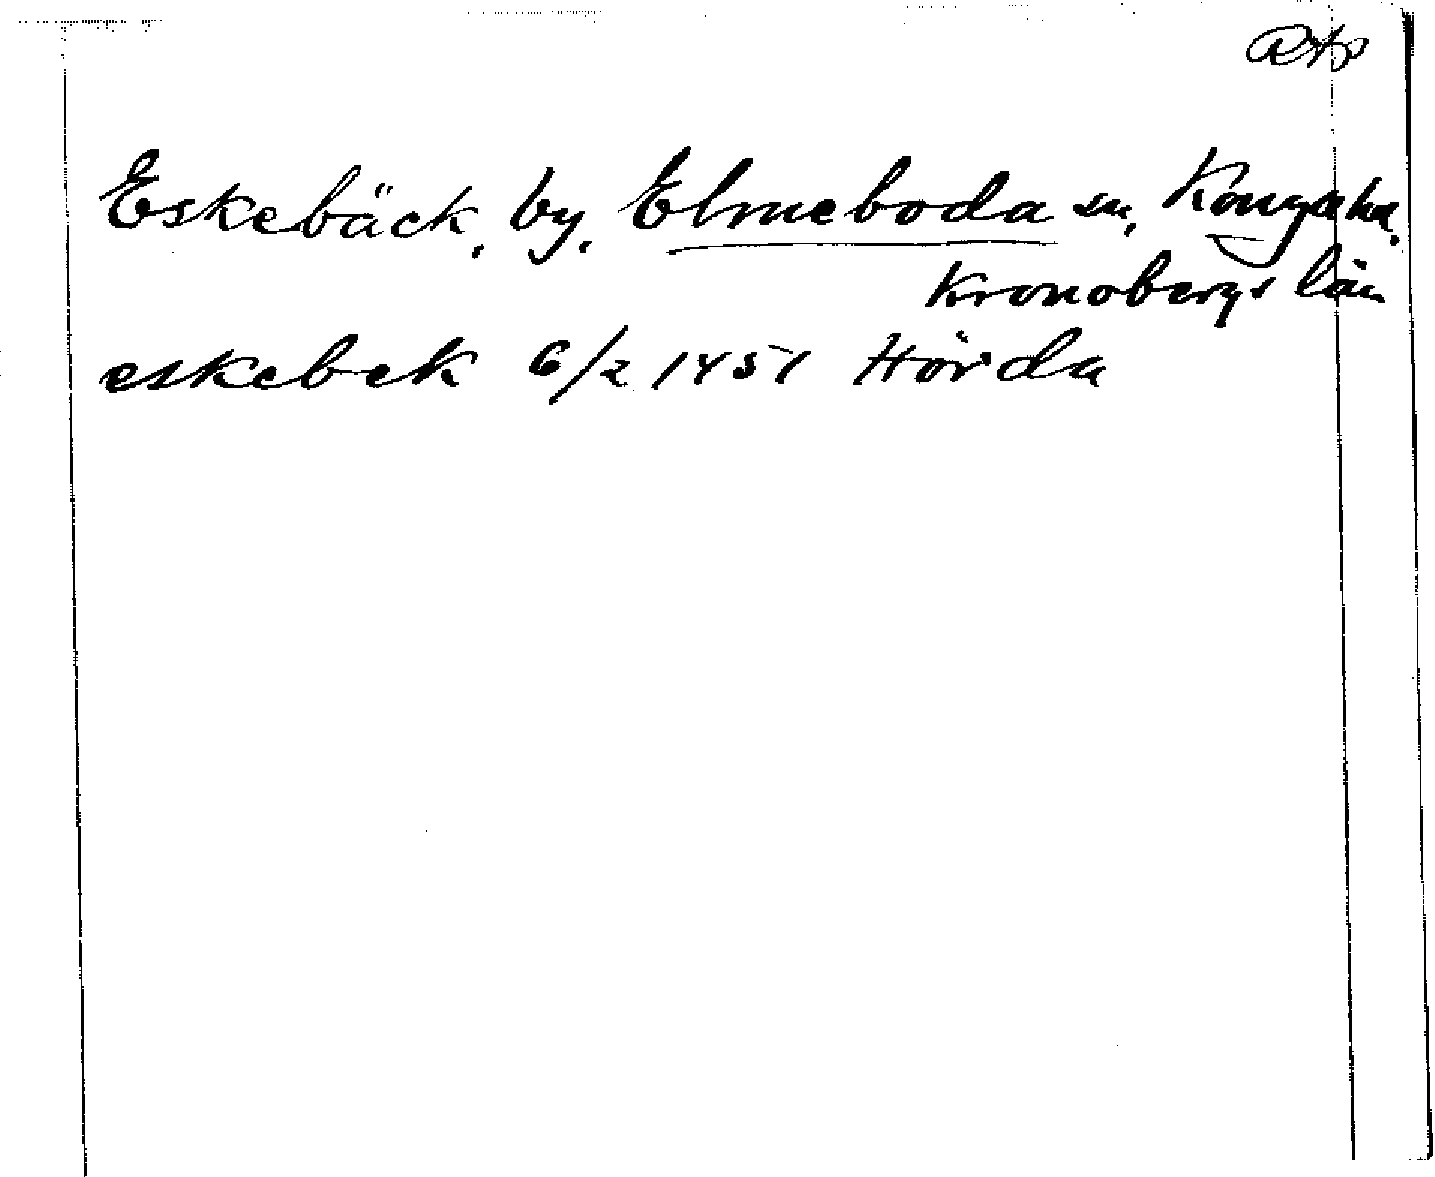 Eskebäck, by, Elmeboda sn, Konga hd.
Kronobergs län
eskebek 6/2 1451 Hörda